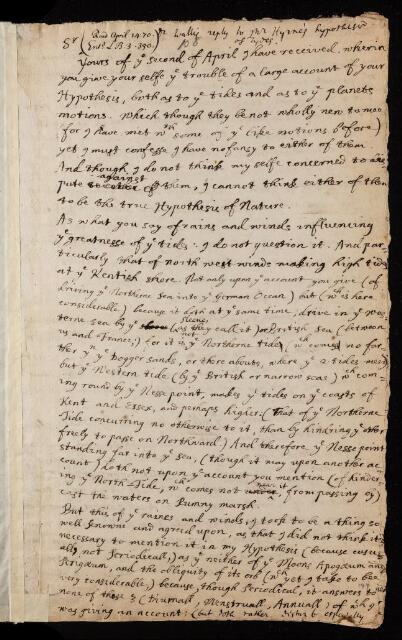 Read April 14. 70. Dr Wallis reply to Mr Hyrne's hypothesis
Entd. L.B. 3. 390. of tydes.
Sr
Yours of ye second of April I have received, wherein
you give your selfe ye trouble of a large account of your
Hypothesis, both as to ye tides and as to ye planets
motions. Which though they be not wholly new to mee
(for I have met wth some of ye like notions before)
yet I must confesse I have no fansy to either of them.
And though I do not think my selfe concerned to dis-
pute against them, I cannot think either of them
to be the true Hypothesis of Nature.
As what you say of rains and winds influencing
ye greatness of ye tides: I do not question it. And par-
ticularly that of north west winds making high tides
at ye Kentish shore. Not only upon ye account you give (of
driving ye Northerne sea into ye German Ocean) but (wch is here
considerable) because it doth at ye same time, drive in ye wes-
terne sea by ye Sleeve, (as they call it) or British sea (between
us and France;) for it is not ye Northerne tide, wch comes no far-
ther yn ye Dogger sands, or there abouts, where ye 2 tides meet,
but ye Western tide (by ye British or narrow seas) wch com-
ing round by ye Nesse point, makes ye tides on ye coasts of
Kent and Essex, and perhaps higher. (That of ye Northerne
Tide concurring no otherwise to it, than by hindring ye other
freely to passe on Northward.) And therefore ye Nesse point
standing far into ye sea, (though it may upon another ac-
count) doth not upon ye account you mention (of hinder-
ing ye North-Tide, wch comes not near it, from passing by)
cast the waters on Rumny marsh.
But this of ye raines and winds, I took to be a thing so
well knowne and agreed upon, as that I did not think it
necessary to mention it in my Hypothesis (because casu-
ally, not Periodicall,) as ye neither of ye Moons Apogæum and
Perigæum, and the obliquity of its orb (wch yet I take to bee
very considerable,) because, though Periodical, it answers to
none of those 3 (Diurnall, Menstruall, Annuall) of wch I
was giving an account: (but doth rather disturb especially